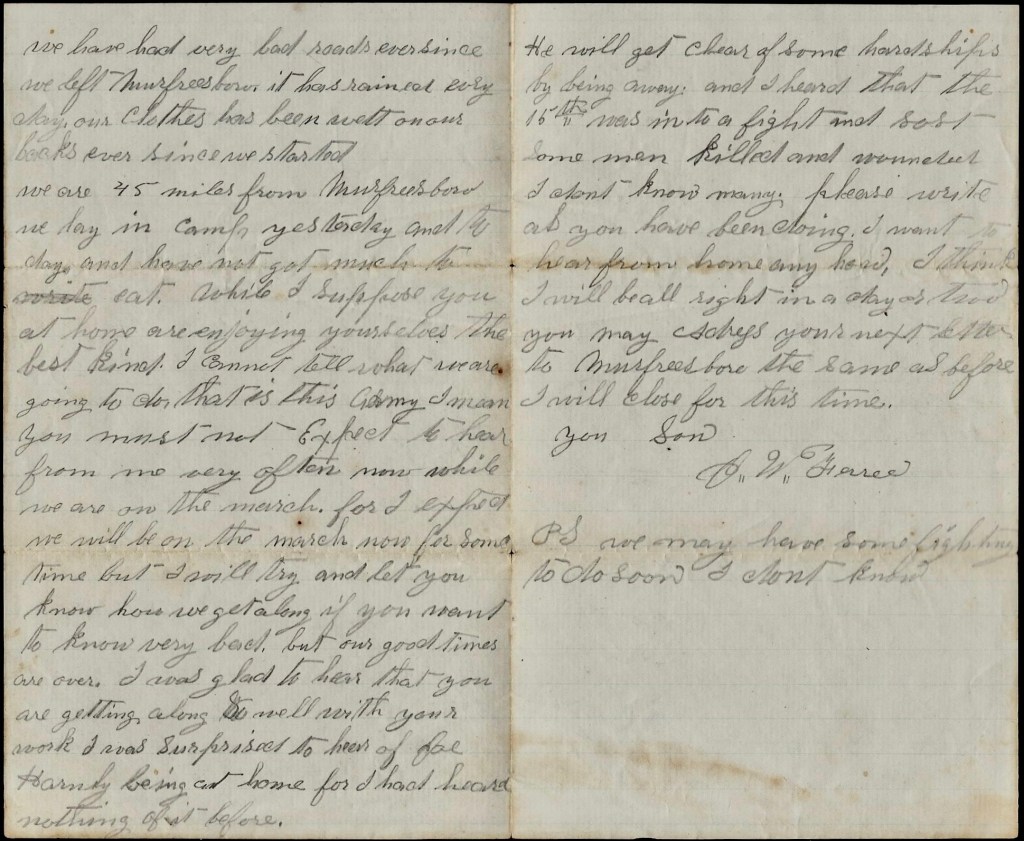 we have had very bad roads ever since
we left Murfreesboro. it has rained evry
day. our clothes has been wett on our
backs ever since we started
we are 45 miles from Murfreesboro
we lay in camp yesterday and to
day. and have not got much to
write eat. while I suppose you
at home are enjoying yourselves the
best kind. I cannot tell what we are
going to do, that is this army I mean
you must not Expect to hear
from me very often now while
we are on the march. for I expect
we will be on the march now for some
time but I will try and let you
know how we get along if you want
to know very bad. but our good times
are over. I was glad to hear that you
are getting along so well with your
work I was surprised to hear of
being at home for I had heard
nothing of it before.
He will get clear of some hardships
by being away. and I heard that the
15th was into a fight and lost
some men killed and wounded
I dont know many. please write
as you have been doing. I want to
hear from home any how, I think
I will be all right in a day or two
you may adress your next letter
to Murfreesboro the same as before
I will close for this time.
you Son
W. Ferree
PS we may have some fighting
to do soon I dont know